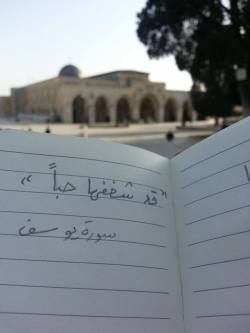 "قد شغفها حباً"
سورة يوسف